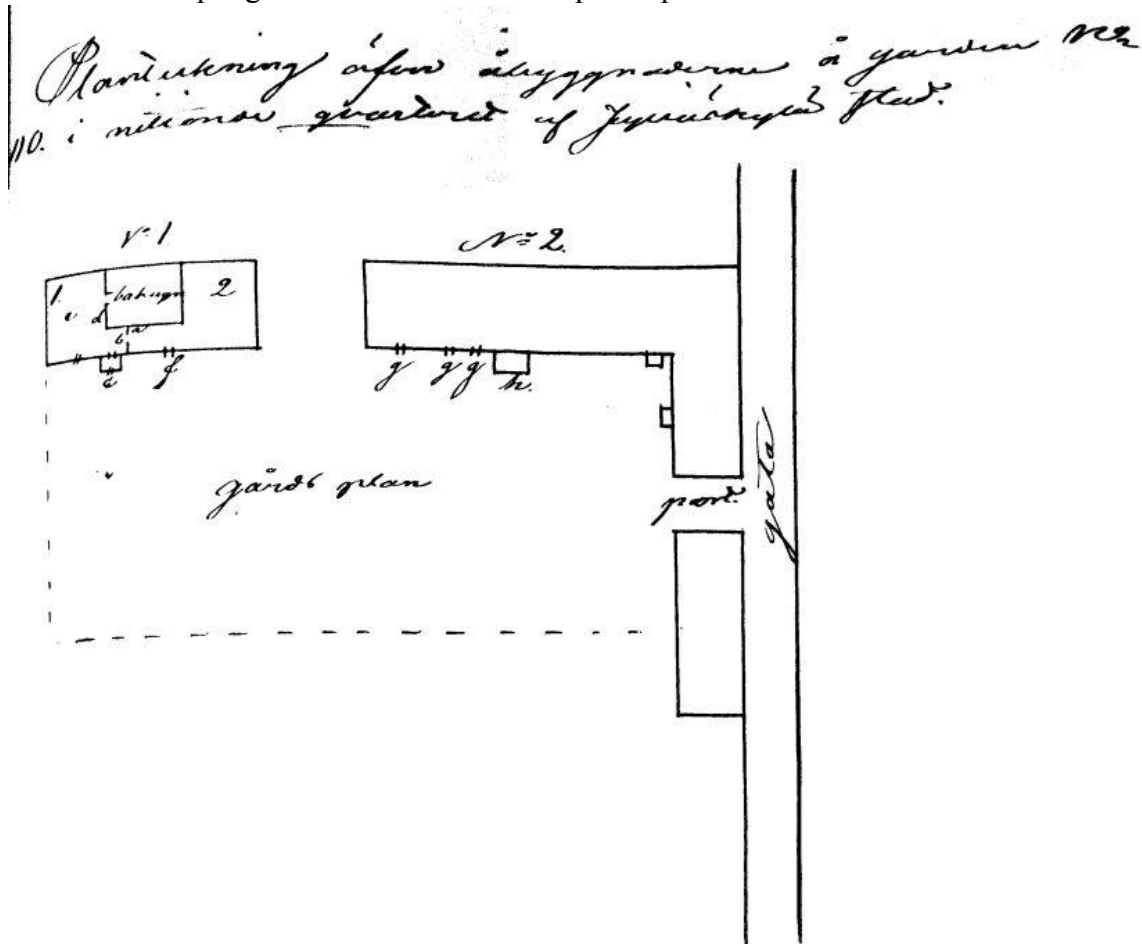 Planteckning öfver åbyggnaderne å gården No
110. i nitionde qvarteret af Jyväskylä stad.
No 1. No 2.
1. bakugn 2
c d
b a
e f g g g h.
gårds plan
port.
gata